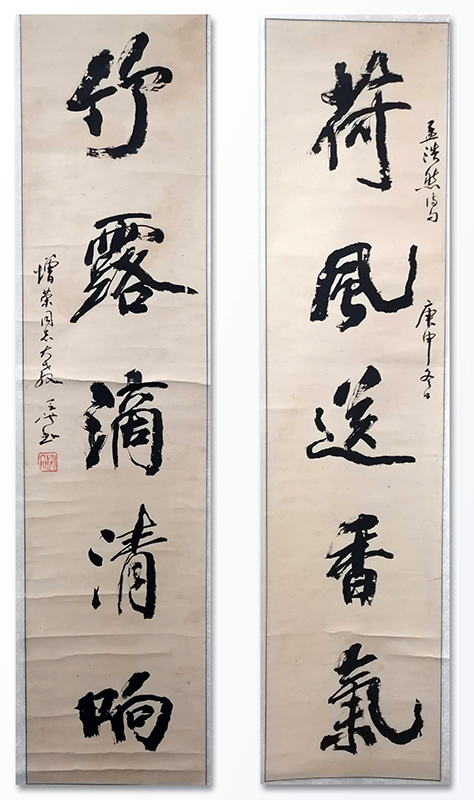 荷風送香氣
孟浩然詩句
庚申冬日
竹露滴清响
增荣同志大教